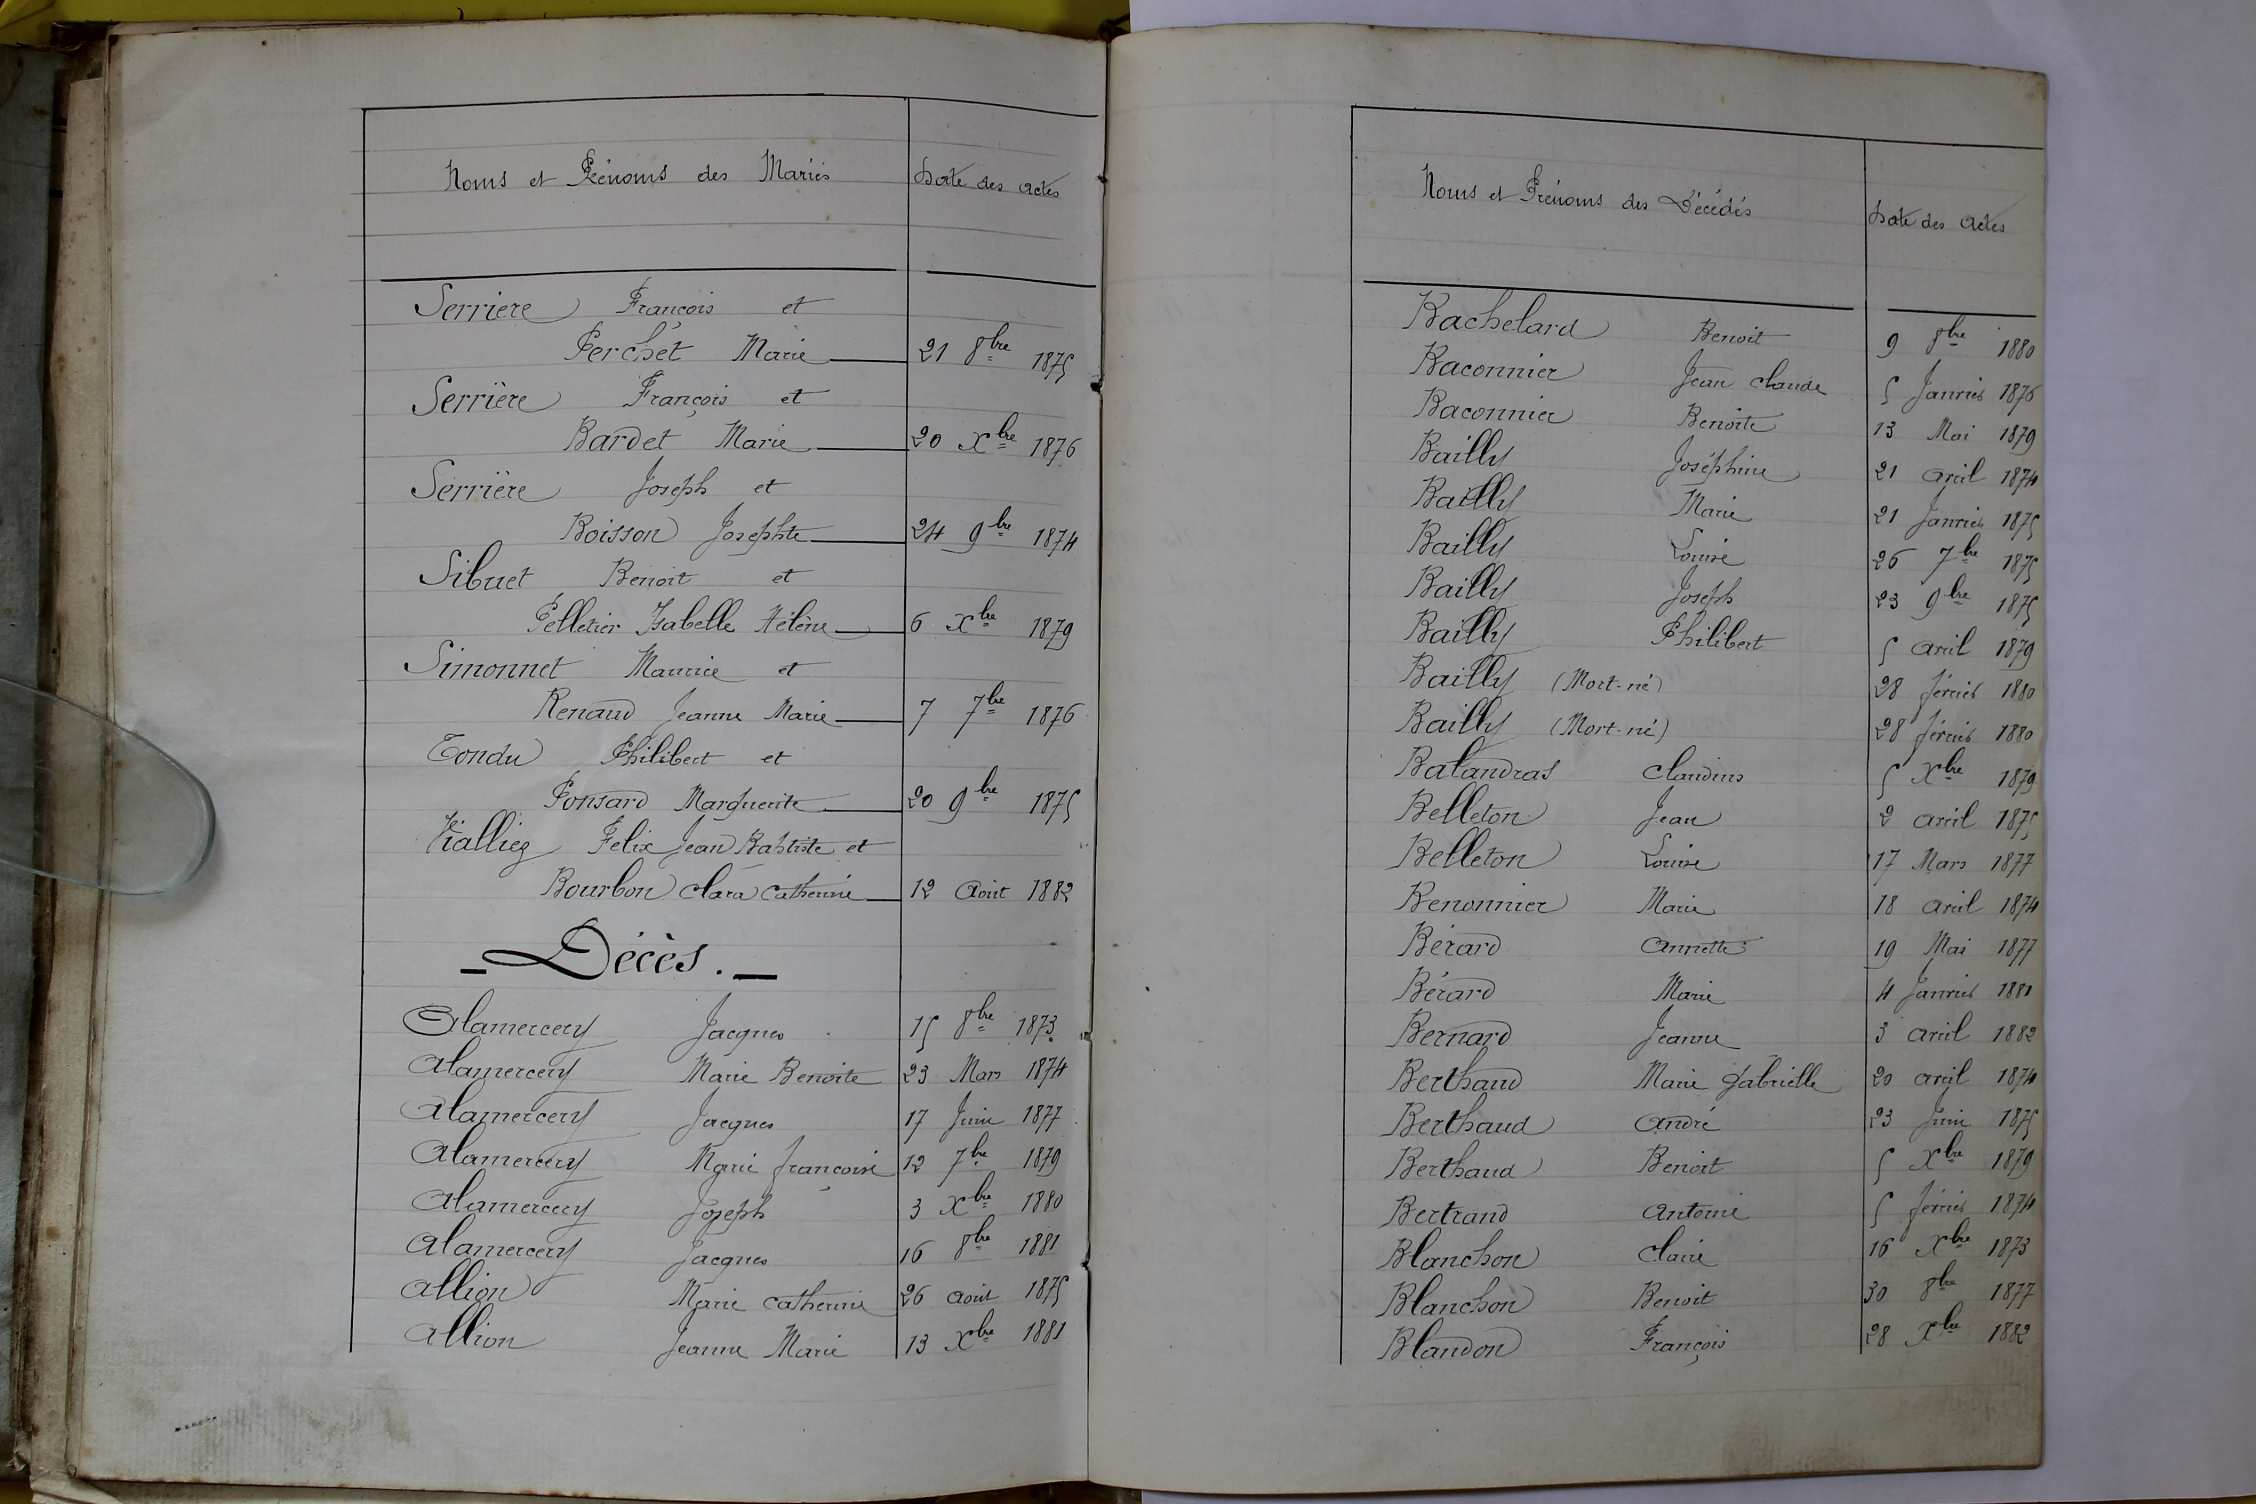 Noms et Prénoms des Mariés Date des actes
Serriere François et
Perchet Marie 21 8bre 1875
Serrière François et
Bardet Marie 20 Xbre 1876
Serrière Joseph et
Boisson Josephte 24 9bre 1874
Sibuet Benoit et
Pelletier Isabelle Hélène 6 Xbre 1879
Simonnet Maurice et
Renaud Jeanne Marie 7 7bre 1876
Tondu Philibert et
Ponsard Marguerite 20 9bre 1875
Vialliez Felix Jean Baptiste et
Bourbon Clara Catherine 12 Aout 1882
- Décès. -
Alamercery Jacques 15 8bre 1873
Alamercery Marie Benoite 23 Mars 1874
Alamercery Jacques 17 Juin 1877
Alamercery Marie françoise 12 7bre 1879
Alamercery Joseph 3 Xbre 1880
Alamercery Jacques 16 8bre 1881
Allion Marie Catherine 26 aout 1875
Allion Jeanne Marie 13 Xbre 1881
Noms et Prénoms des Décédés Date des Actes
Bachelard Benoit 9 8bre 1880
Baconnier Jean Claude 5 Janvier 1876
Baconnier Benoite 13 Mai 1879
Bailly Joséphine 21 avril 1874
Bailly Marie 21 Janvier 1875
Bailly Louise 26 7bre 1875
Bailly Joseph 23 9bre 1875
Bailly Philibert 5 avril 1879
Bailly (Mort-né) 28 février 1880
Bailly (Mort-né) 28 février 1880
Balandras Claudius 5 Xbre 1879
Belleton Jean 2 avril 1875
Belleton Louise 17 Mars 1877
Benonnier Marie 18 avril 1874
Bérard Annette 19 Mai 1877
Bérard Marie 4 Janvier 1881
Bernard Jeanne 3 avril 1882
Berthaud Marie Gabrielle 20 avril 1874
Berthaud André 23 Juin 1875
Berthaud Benoit 5 Xbre 1879
Bertrand Antoine 5 février 1874
Blanchon Claire 16 Xbre 1873
Blanchon Benoit 30 8bre 1877
Blandon François 28 Xbre 1882